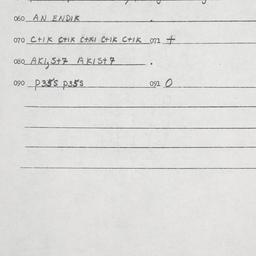 060 AN ENDIK
070 C+IK C+IK C+KI C+IK C+IK 071 +
080 AKI,S+7 AKIS+7
090 P35S P35S 091 O